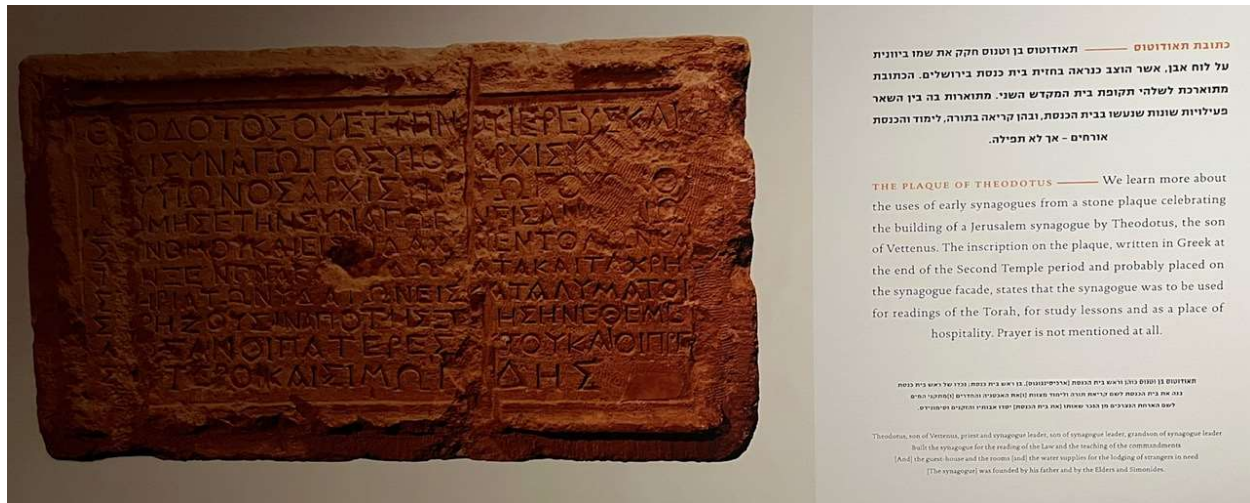 ΟΔΟΤΟΣΟΥΕΤΤΗΝ ΙΕΡΕΥΣΚΑΙ
ΙΣΥΝΑΓΩΓΟΣΥΙΟ ΑΡΧΙΣΥ
ΩΝΟΣΑΡΧΙΣ ΓΩΓΟΥ Ο
ΔΟΜΗΣΕΤΗΝΣΥΝΑΓΩΓ
ΝΟΜΟΥΚΑΙΕΙΣ ΕΝΤΟΛΩΝ
ΤΑΚΑΙΤΑΧΡΗ
ΗΡΙΑΤΩΝΥΔΑΤΩΝΕΙΣ ΚΑΤΑΛΥΜΑΤΟΙ
ΗΖΟΥΣΙΝ ΗΣΗΝΕΘΕΜΕ
ΤΕΡΕΣ ΤΟΥΚΑΙΟΙΠΡ
ΤΕΡΟΙΚΑΙΣΙΜΩΝ ΔΗΣ
כתובת תאודוטוס —— תאודוטוס בן וטנוס חקק את שמו ביוונית
על לוח אבן, אשר הוצב כנראה בחזית בית כנסת בירושלים. הכתובת
מתוארכת לשלהי תקופת בית המקדש השני. מתוארות בה בין השאר
פעילויות שונות שנעשו בבית הכנסת, ובהן קריאה בתורה, לימוד והכנסת
אורחים – אך לא תפילה.
THE PLAQUE OF THEODOTUS —— We learn more about
the uses of early synagogues from a stone plaque celebrating
the building of a Jerusalem synagogue by Theodotus, the son
of Vettenus. The inscription on the plaque, written in Greek at
the end of the Second Temple period and probably placed on
the synagogue facade, states that the synagogue was to be used
for readings of the Torah, for study lessons and as a place of
hospitality. Prayer is not mentioned at all.
תאודוטוס בן וטנוס כוהן וראש בית הכנסת (ארכיסינגוגוס), בן ראש בית כנסת, נכדו של ראש בית כנסת
בנה את בית הכנסת לשם קריאת תורה ולימוד מצוות [ו]את האכסניה והחדרים [ו]מתקני המים
לשם הארחת הנצרכים מן הנכר שאותו (את בית הכנסת) יסדו אבותיו והזקנים וסימונידס.
Theodotus, son of Vettenus, priest and synagogue leader, son of synagogue leader, grandson of synagogue leader
Built the synagogue for the reading of the Law and the teaching of the commandments
[And] the guest-house and the rooms [and] the water supplies for the lodging of strangers in need
[The synagogue] was founded by his father and by the Elders and Simonides.